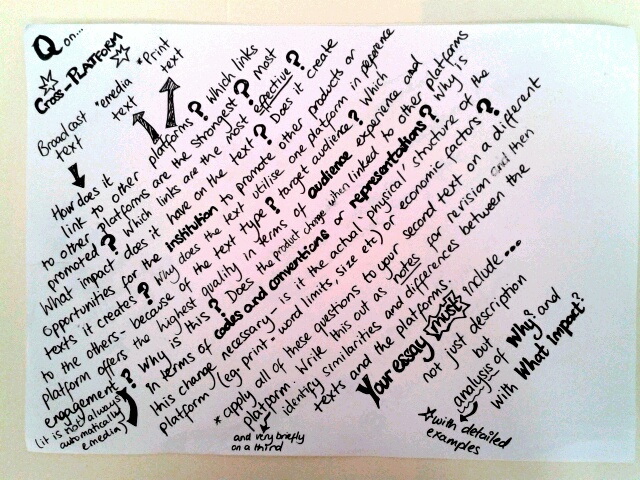 Q on...
Cross-Platform
Broadcast
text
*emedia
text
*Print
text
How does it
link to other platforms? Which links
to other platforms are the strongest? most
promoted? Which links are the most effective?
What impact does it have on the text? Does it create
opportunities for the institution to promote other products or
texts it creates? Why does the text utilise one platform in preference
to the others - because of the text type? target audience? Which
platform offers the highest quality in terms of audience experience and
engagement? Why is this? Does the product change when linked to other platforms
(it is not always
automatically
emedia)
in terms of codes and conventions or representations? Why is
this change necessary - is it the actual 'physical' structure of the
platform (eg print = word limits, size etc) or economic factors?
* apply all of these questions to your second text on a different
platform. Write this out as notes for revision and then
and very briefly
on a third
identify similarities and differences between the
texts and the platforms.
Your essay must include...
not just description
but
analysis of Why? and
with What Impact?
with detailed
examples